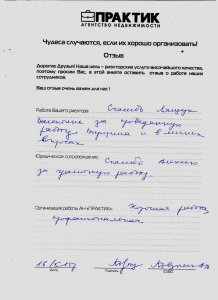 ПРАКТИК
АГЕНТСТВО НЕДВИЖИМОСТИ
Чудеса случаются, если их хорошо организовать!
Отзыв
Дорогие Друзья! Наша цель – риэлторские услуги высочайшего качества,
поэтому просим Вас, в этой анкете оставить отзыв о работе наших
сотрудников.
Ваш отзыв очень важен для нас!
Работа Вашего риэлтора: Спасибо
за проведенную
работу. и в
вопросах
Юридическое сопровождение: Спасибо Алексею
за грамотную работу.
Организация работы АН «ПРАКТИК»: Хорошая работа,
профессиональная
Дата
Подпись
ФИО